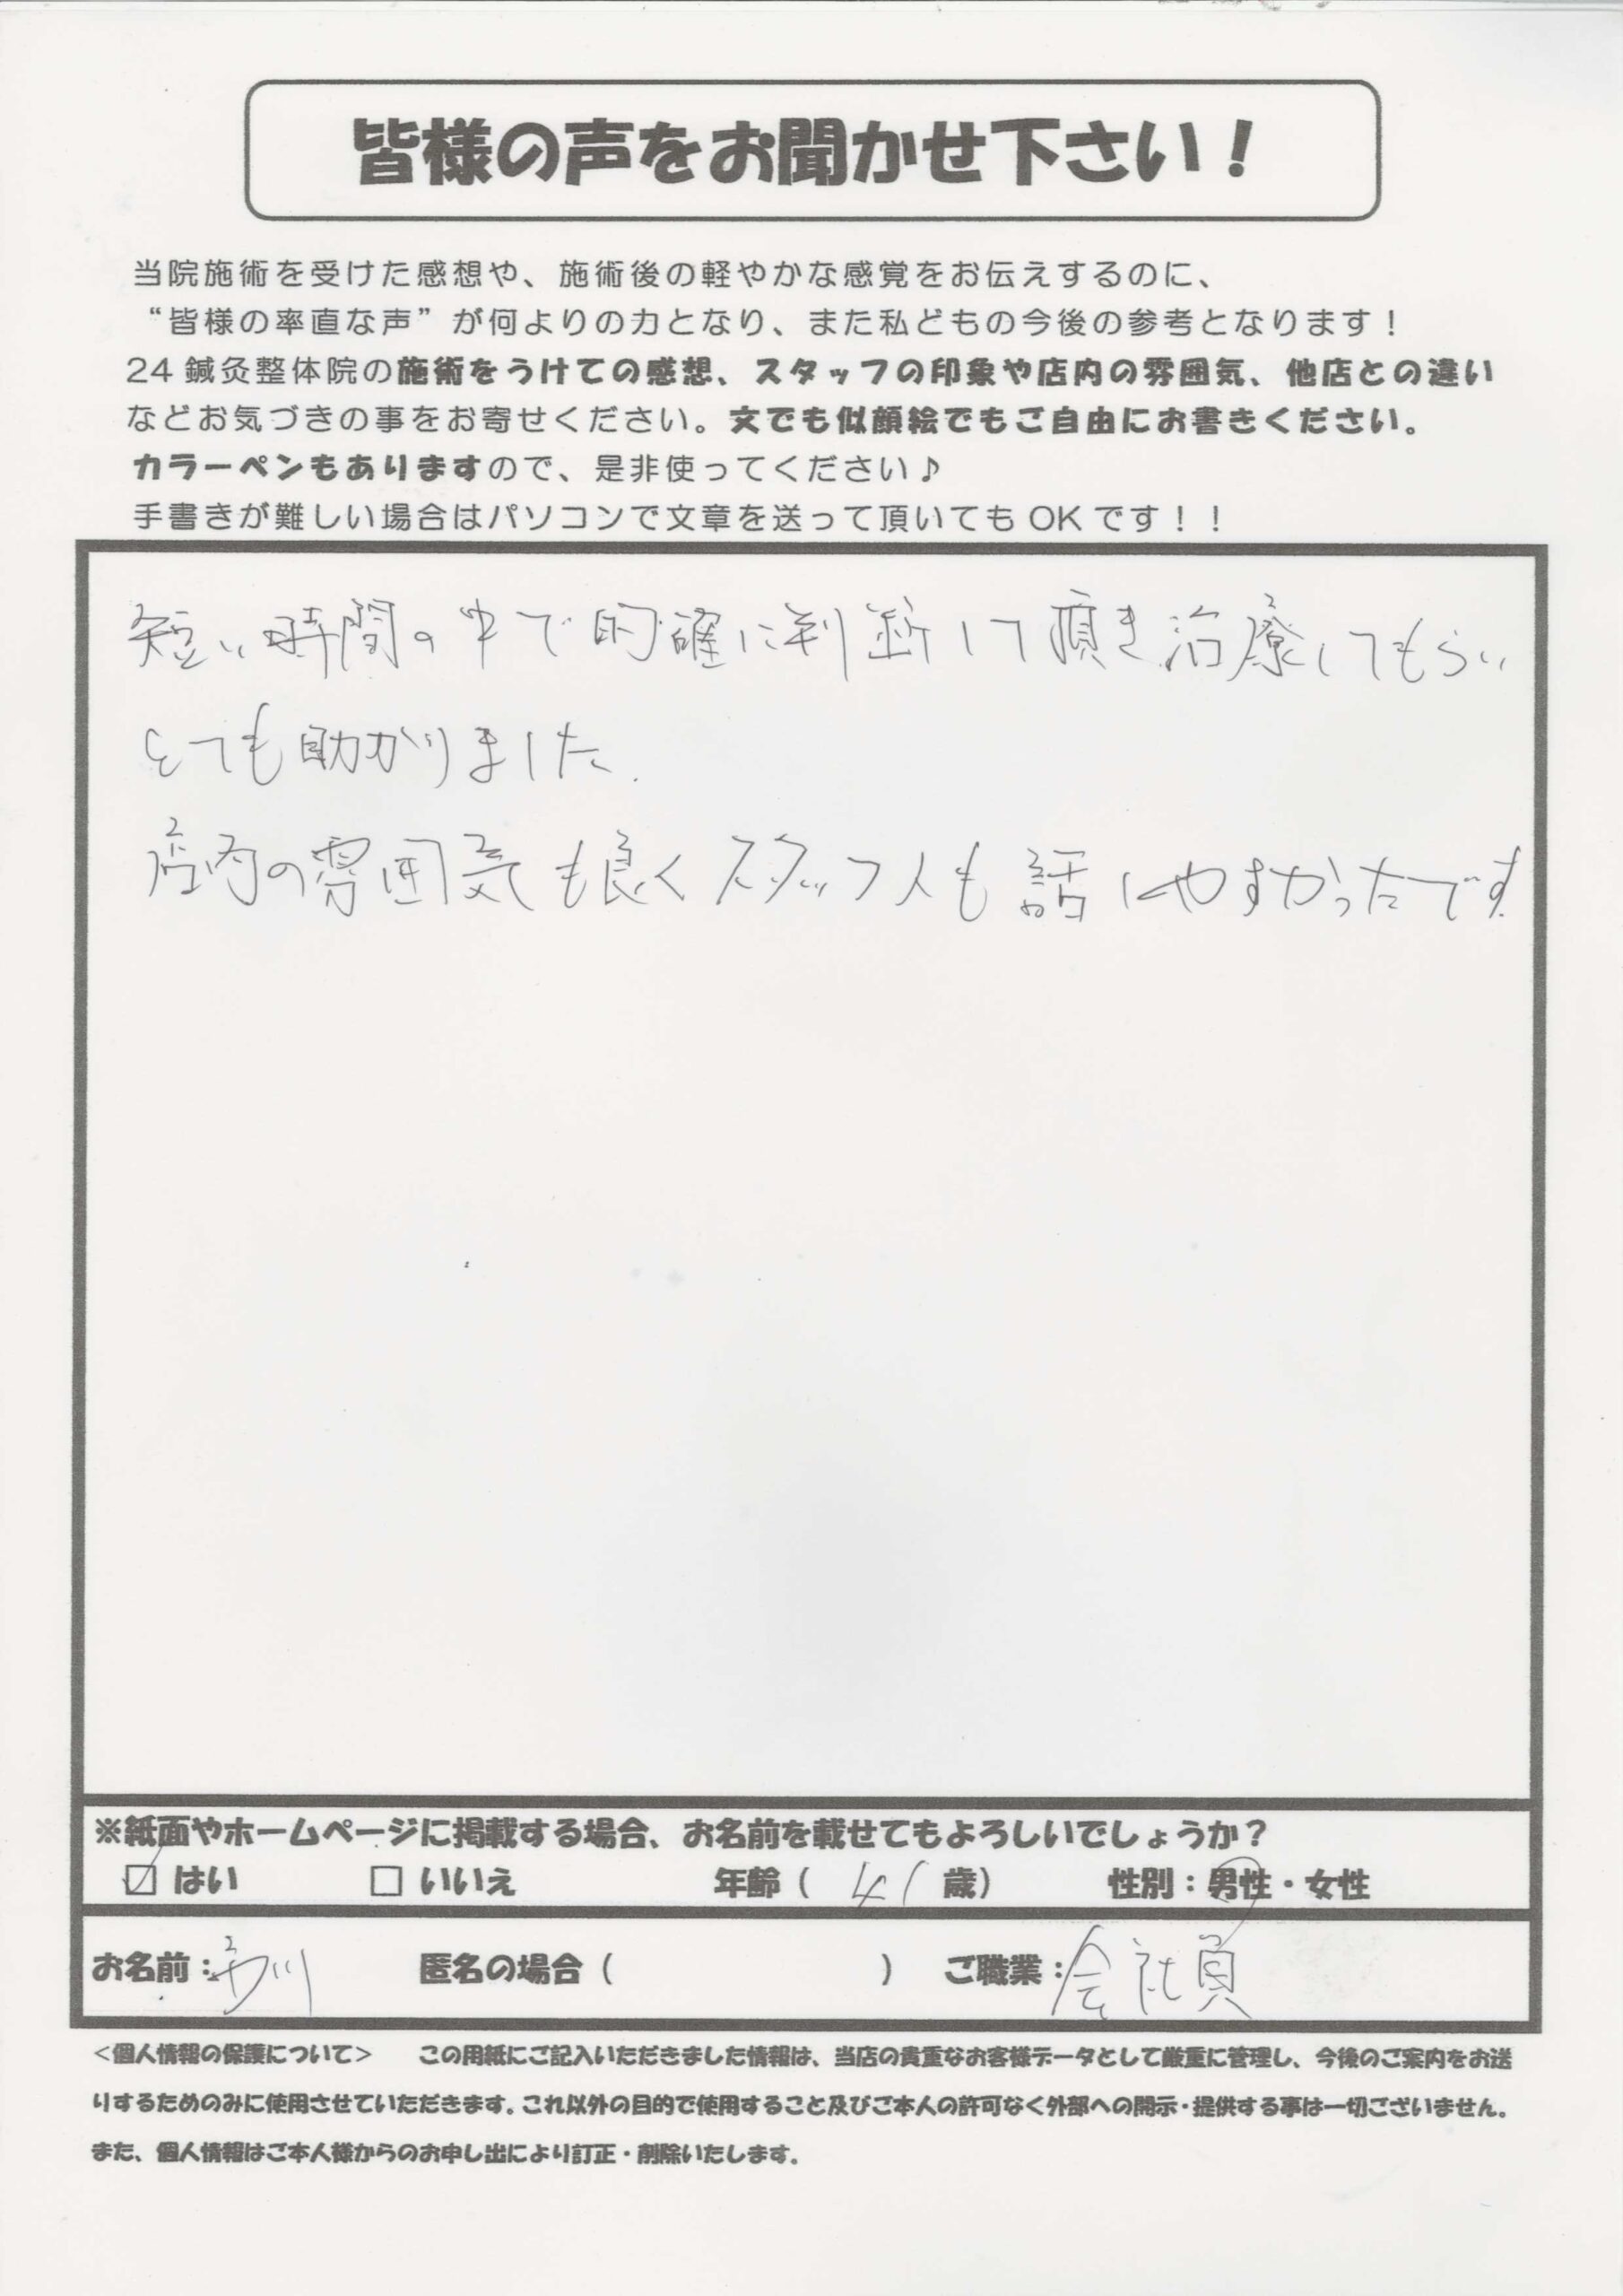 皆様の声をお聞かせ下さい！
当院施術を受けた感想や、施術後の軽やかな感覚をお伝えするのに、
“皆様の率直な声”が何よりの力となり、また私どもの今後の参考となります！
24鍼灸整体院の施術をうけての感想、スタッフの印象や店内の雰囲気、他店との違い
などお気づきの事をお寄せください。文でも似顔絵でもご自由にお書きください。
カラーペンもありますので、是非使ってください♪
手書きが難しい場合はパソコンで文章を送って頂いてもOKです！！
短い時間の中で的確に判断して頂き治療してもらい
とても助かりました.
店内の雰囲気も良くスタッフ人も話しやすかったです
※紙面やホームページに掲載する場合、お名前を載せてもよろしいでしょうか？
☑はい □いいえ 年齢（ 41 歳） 性別：男性・女性
お名前： 匿名の場合（ ） ご職業：会社員
＜個人情報の保護について＞ この用紙にご記入いただきました情報は、当店の貴重なお客様データとして厳重に管理し、今後のご案内をお送
りするためのみに使用させていただきます。これ以外の目的で使用すること及びご本人の許可なく外部への開示・提供する事は一切ございません。
また、個人情報はご本人様からのお申し出により訂正・削除いたします。